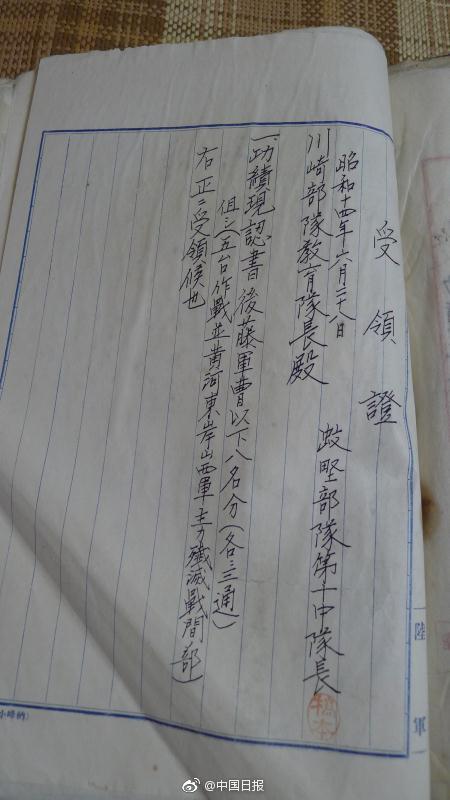 受領證
昭和十四年六月二十八日
蚊野部隊第十中隊長
川崎部隊教育隊長殿
一功績現認書 後藤軍曹以下八名分(各三通)
但シ(五台作戰並黄河東岸山西軍主力殲滅戰間ノ部)
右正ニ受領候也
陸軍
@中国日报